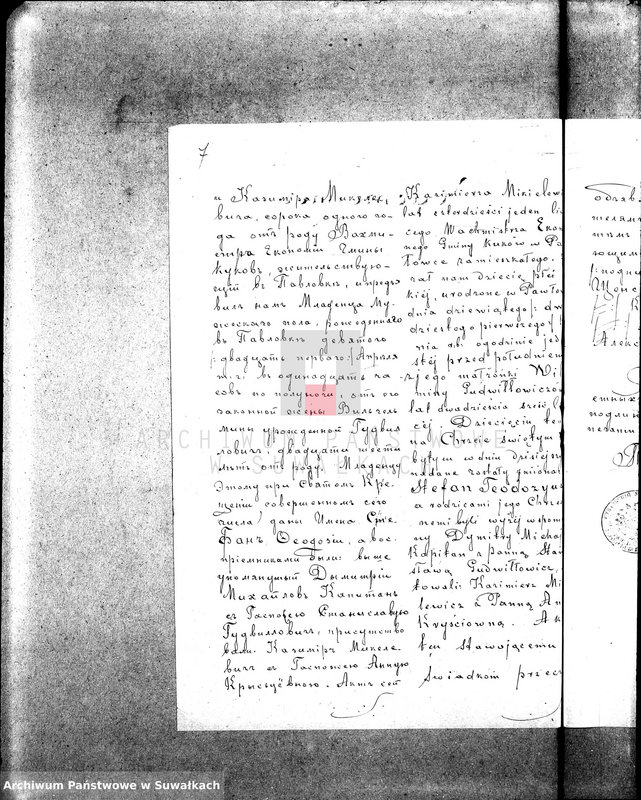 7
и Казимира Микуле-
вича, сорока одного го-
да отъ роду Вахми-
стра Економiи Гмины
Куковъ, жительствую-
щiй въ Павловкѣ, и предъ
вилъ намъ Младенца Му-
жескаго пола, рожденнаго
въ Павловкѣ девятаго
/:двадцать перваго:/ Апрѣля
т: г: въ одинадцать ча-
совъ по полуночи, отъ его
законной жены Вильгель
мины урожденной Гудвил
ловичъ, двадцати шести
лѣтъ отъ роду. Младенцу
этому при Святомъ Кре-
щенiи совершенномъ сего
числа, даны Имена Сте-
фанъ Феодозiй, а вос-
прiемниками были: выше
упомянутый Дымитрiй
Михайловъ Капитанъ
съ Госпожею Станиславую
Гудвилловичъ, присутство
вали: Казимiръ Микеле-
вичъ съ Госпожею Анную
Крысцёвною. Актъ сей
Kazimierza Mikielew
lat czterdzieści jeden li
cego Wachmistrza Eko
nego Gminy Kuków w Pa
łowce zamieszkałego.
zał nam dziecię płci
kiéj, urodzone w Pawło
dnia dziewiątego /: dw
dziestego pierwszego /
nia r.b. o godzinie jed
stéj przed południem
z jego małżonki Wil
miny Gudwiłłowiczó
lat dwadzieścia sześć l
céj. Dziecięciu te
na Chrzcie świętym
bytym w dniu dzisiejs
nadane zostały imiona
Stefan Teodozyu
a rodzicami jego Chrze
nemi byli wyżéj wspom
ny Dymitry Micha
Kapitan z Panną Sta
sławą Gudwiłłowicz,
towali: Kazimierz Mi
lewicz z Panną An
Kryściówną. Ak
ten stawającemu
Świadkom przecz
объяв
телям
тымъ
ющимъ
Алекс
етныхъ
подли
печати
ARCHIWUM PAŃSTWOWE
W SUWAŁKACH
Archiwum Państwowe w Suwałkach